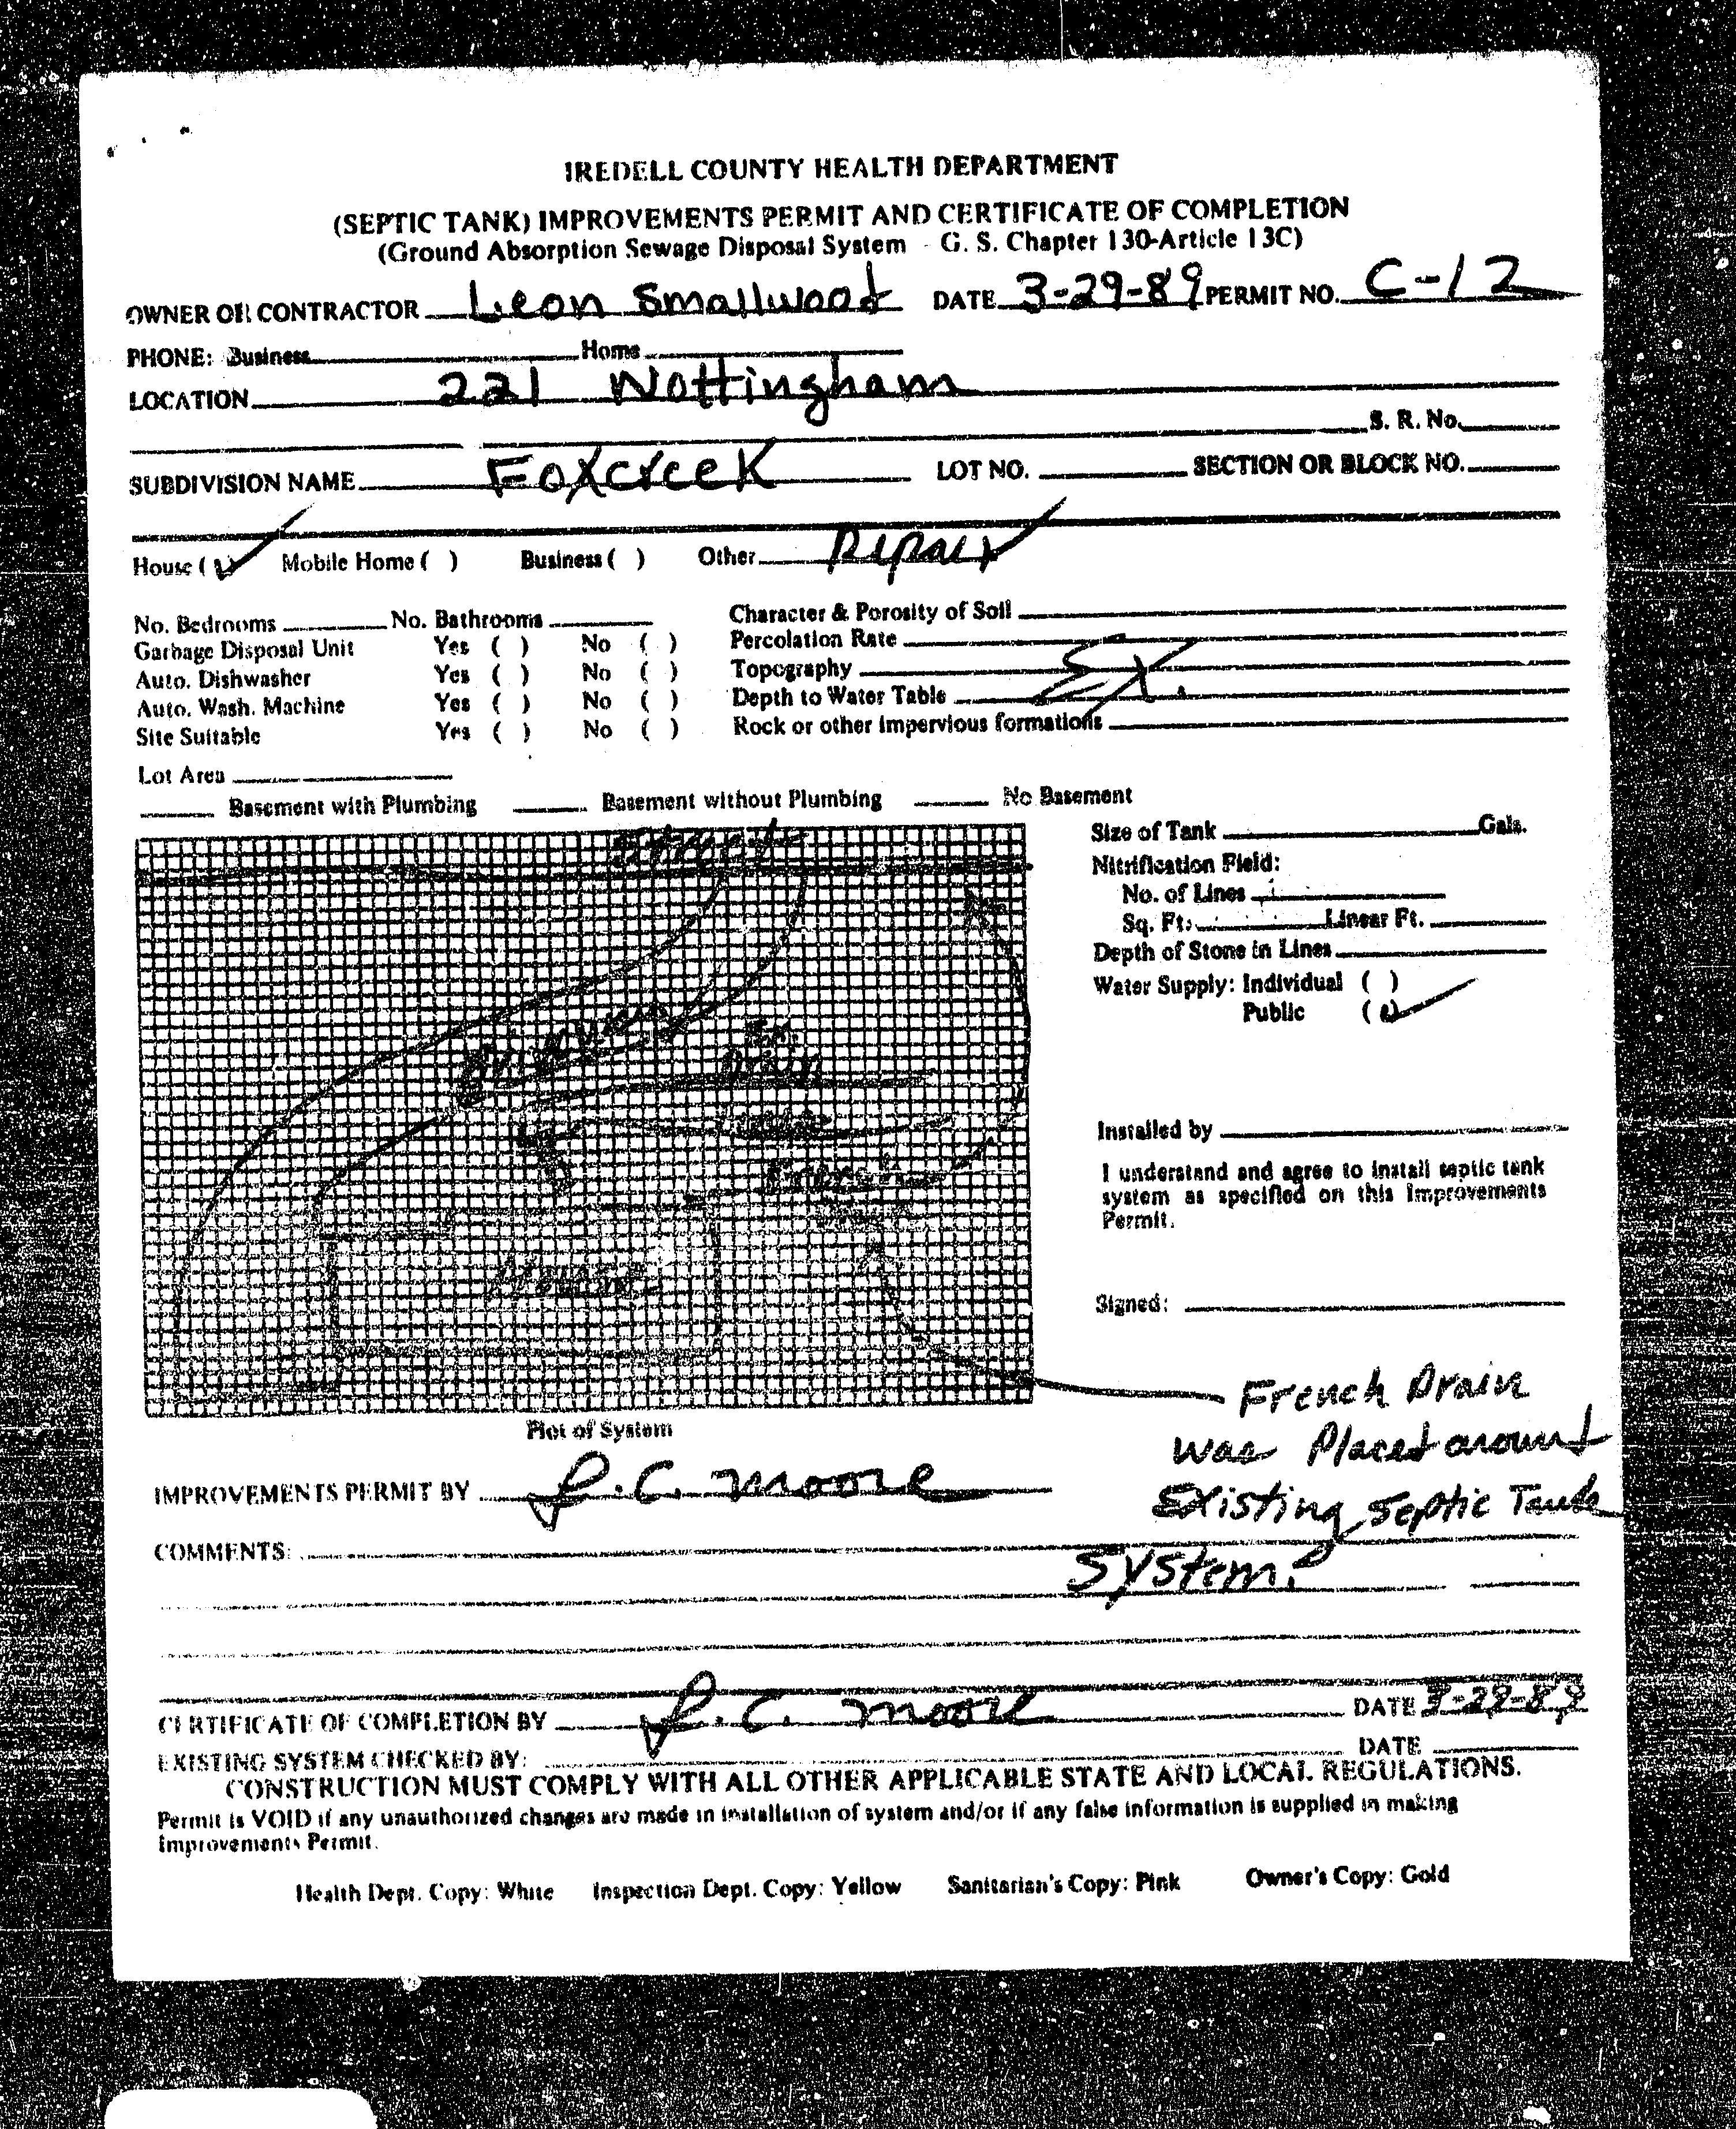 IREDELL COUNTY HEALTH DEPARTMENT
(SEPTIC TANK) IMPROVEMENTS PERMIT AND CERTIFICATE OF COMPLETION
(Ground Absorption Sewage Disposal System - G. S. Chapter 130-Article 13C)
OWNER OR CONTRACTOR Leon Smallwood DATE 3-29-89 PERMIT NO. C-12
PHONE: Business Home
LOCATION 221 Nottingham
S. R. No.
SUBDIVISION NAME Foxcreek LOT NO. SECTION OR BLOCK NO.
House (✓) Mobile Home ( ) Business ( ) Other Repair
No. Bedrooms No. Bathrooms Character & Porosity of Soil
Garbage Disposal Unit Yes ( ) No ( ) Percolation Rate
Auto. Dishwasher Yes ( ) No ( ) Topography EX.
Auto. Wash. Machine Yes ( ) No ( ) Depth to Water Table
Site Suitable Yes ( ) No ( ) Rock or other impervious formations
Lot Area
Basement with Plumbing Basement without Plumbing No Basement
Street
Driveway
Ex.
Drain
Size of Tank Gals.
Nitrification Field:
No. of Lines
Sq. Ft. Linear Ft.
Depth of Stone in Lines
Water Supply: Individual ( )
Public (✓)
Installed by
I understand and agree to install septic tank
system as specified on this Improvements
Permit.
Signed:
French Drain
was Placed around
Existing Septic Tank
System.
Plot of System
IMPROVEMENTS PERMIT BY J.C. Moore
COMMENTS:
CERTIFICATE OF COMPLETION BY J.C. Moore DATE 3-29-89
EXISTING SYSTEM CHECKED BY: DATE
CONSTRUCTION MUST COMPLY WITH ALL OTHER APPLICABLE STATE AND LOCAL REGULATIONS.
Permit is VOID if any unauthorized changes are made in installation of system and/or if any false information is supplied in making
Improvements Permit.
Health Dept. Copy: White Inspection Dept. Copy: Yellow Sanitarian's Copy: Pink Owner's Copy: Gold